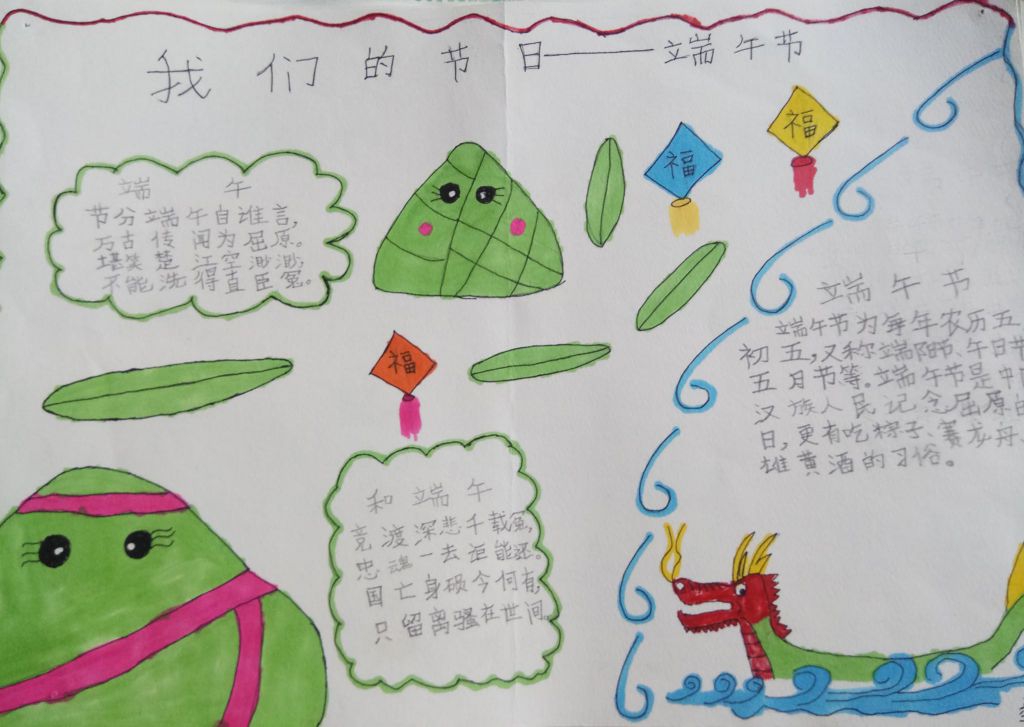 我们的节日——端午节
福
福
端午
节分端午自谁言,
万古传闻为屈原。
堪笑楚江空渺渺,
不能洗得直臣冤。
福
端午节
端午节为每年农历五
初五,又称端阳节、午日节
五月节等。端午节是中
汉族人民记念屈原的
日,更有吃粽子、赛龙舟、
雄黄酒的习俗。
和端午
竞渡深悲千载冤,
忠魂一去讵能还。
国亡身殒今何有,
只留离骚在世间。